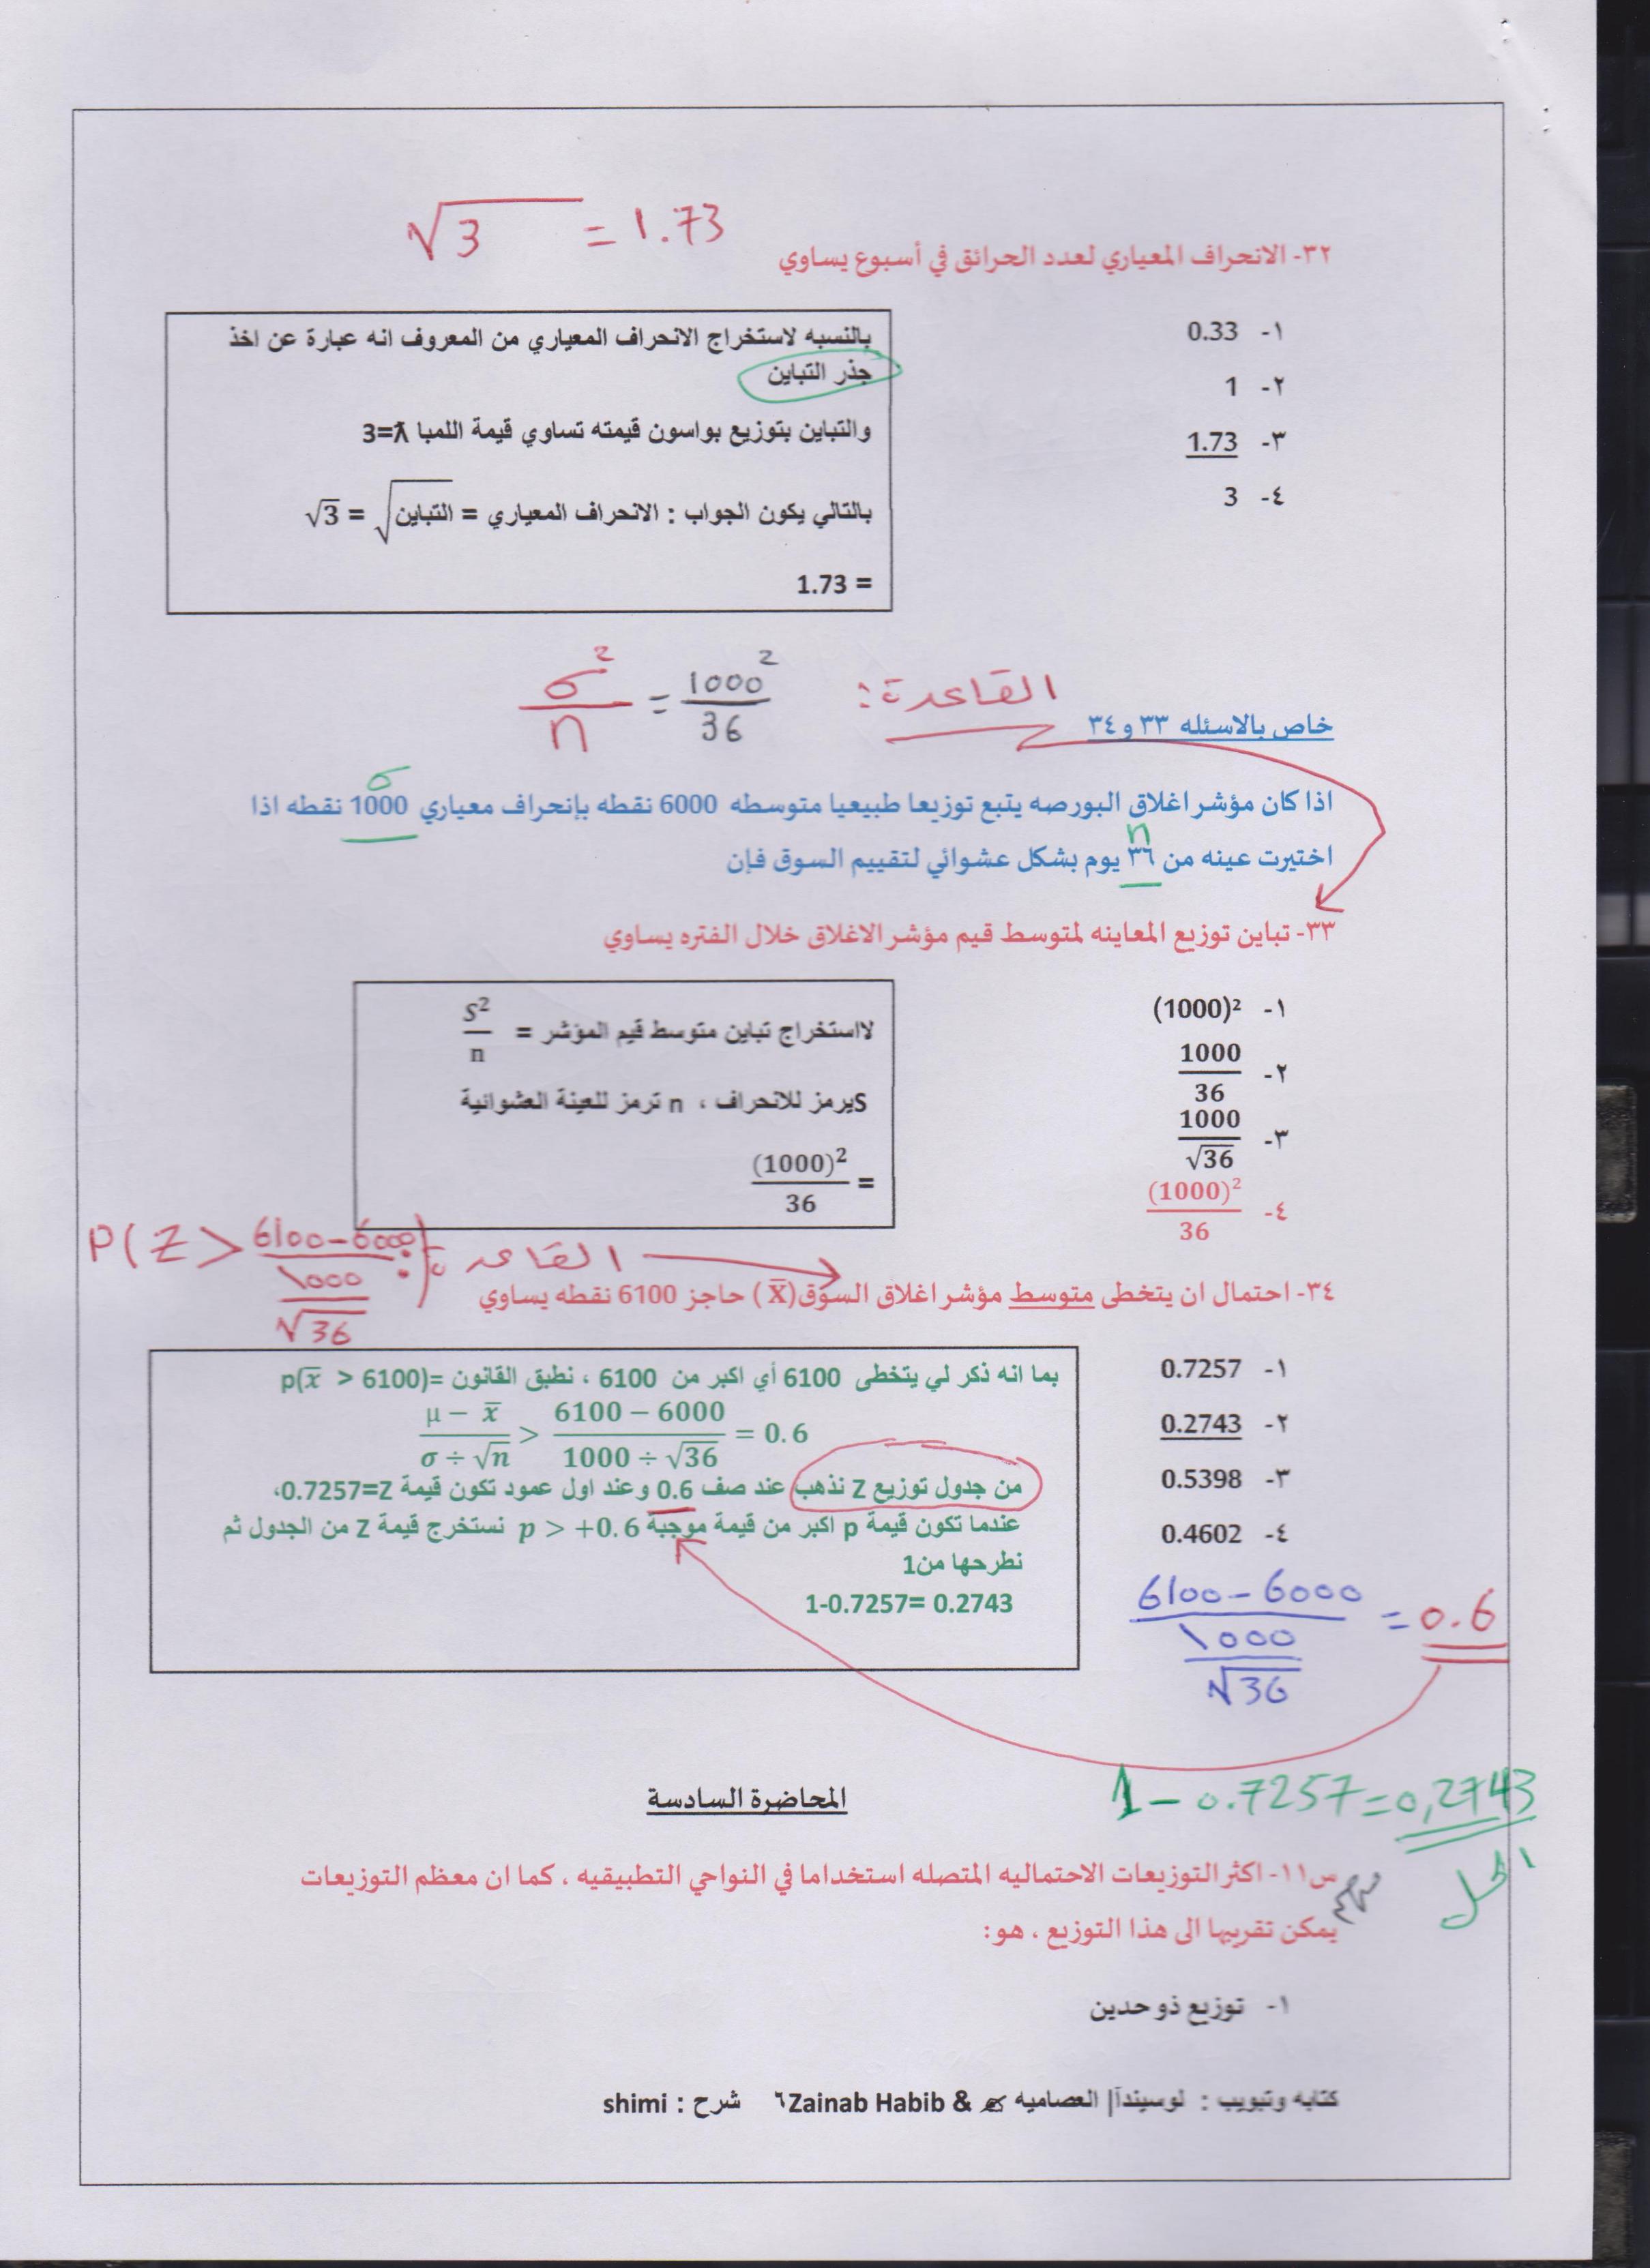 √3 = 1.73
٣٢- الانحراف المعياري لعدد الحرائق في أسبوع يساوي
١- 0.33
٢- 1
٣- 1.73
٤- 3
بالنسبه لاستخراج الانحراف المعياري من المعروف انه عبارة عن اخذ
جذر التباين
والتباين بتوزيع بواسون قيمته تساوي قيمة اللمبا λ=3
بالتالي يكون الجواب : الانحراف المعياري = √التباين = √3
= 1.73
القاعدة: σ²/n = 1000²/36
خاص بالاسئله ٣٣ و ٣٤
σ
اذا كان مؤشر اغلاق البورصه يتبع توزيعا طبيعيا متوسطه 6000 نقطه بإنحراف معياري 1000 نقطه اذا
n
اختيرت عينه من ٣٦ يوم بشكل عشوائي لتقييم السوق فإن
٣٣- تباين توزيع المعاينه لمتوسط قيم مؤشر الاغلاق خلال الفتره يساوي
١- (1000)²
٢- 1000/36
٣- 1000/√36
٤- (1000)²/36
لاستخراج تباين متوسط قيم المؤشر = S²/n
Sيرمز للانحراف ، n ترمز للعينة العشوائية
= (1000)²/36
P(Z > (6100-6000)/(1000/√36)) : القاعدة
٣٤- احتمال ان يتخطى متوسط مؤشر اغلاق السوق(X̄) حاجز 6100 نقطه يساوي
١- 0.7257
٢- 0.2743
٣- 0.5398
٤- 0.4602
بما انه ذكر لي يتخطى 6100 أي اكبر من 6100 ، نطبق القانون =p(x̄ > 6100)
(μ − x̄)/(σ ÷ √n) > (6100 − 6000)/(1000 ÷ √36) = 0.6
من جدول توزيع Z نذهب عند صف 0.6 وعند اول عمود تكون قيمة Z=0.7257،
عندما تكون قيمة p اكبر من قيمة موجبة p > +0.6 نستخرج قيمة Z من الجدول ثم
نطرحها من1
1-0.7257= 0.2743
(6100-6000)/(1000/√36) = 0.6
1 - 0.7257 = 0,2743
الحل
المحاضرة السادسة
مهم
س١١- اكثر التوزيعات الاحتماليه المتصله استخداما في النواحي التطبيقيه ، كما ان معظم التوزيعات
يمكن تقريبها الى هذا التوزيع ، هو:
١- توزيع ذو حدين
كتابه وتبويب : لوسيندآ| العصاميه & Zainab Habib٦ شرح : shimi